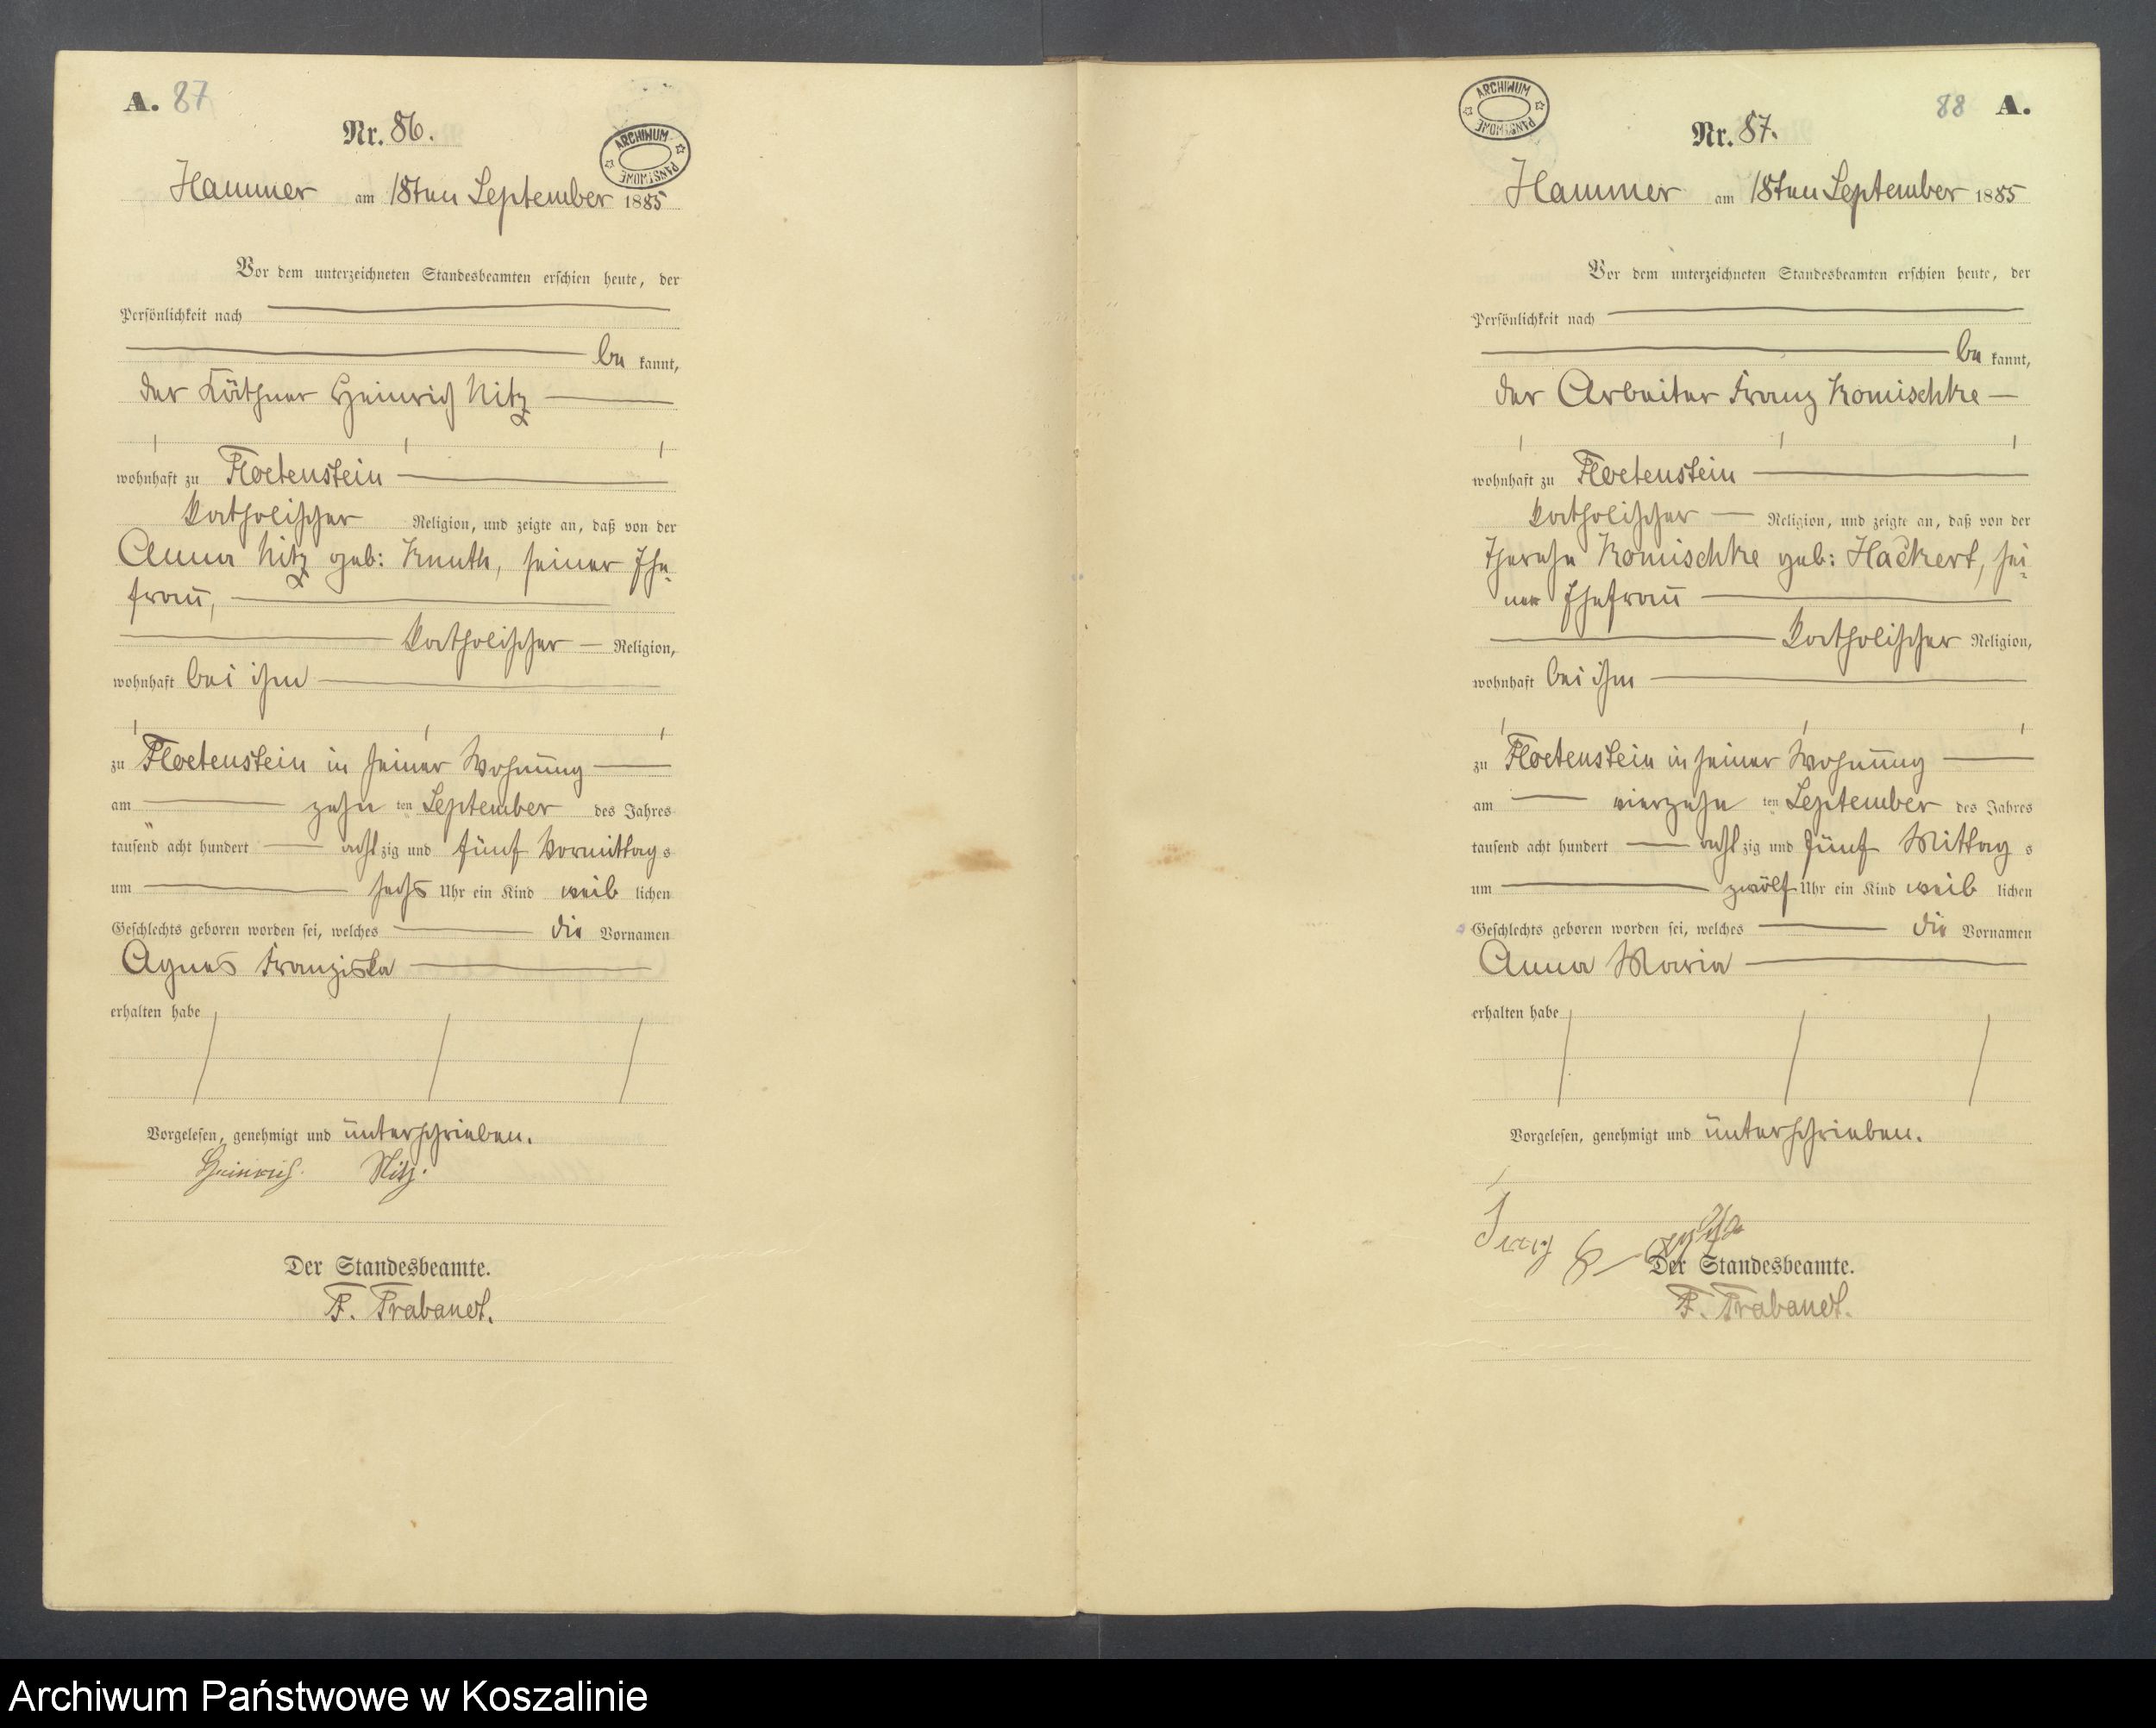 A. 87
Nr. 86.
ARCHIWUM PANSTWOWE
Hammer am 18ten September 1885
Vor dem unterzeichneten Standesbeamten erschien heute, der
Persönlichkeit nach
be kannt,
der Käthner Heinrich Nitz
wohnhaft zu Floetenstein
katholischer Religion, und zeigte an, daß von der
Anna Nitz geb: Knuth, seiner Ehe-
frau,
katholischer Religion,
wohnhaft bei ihm
zu Floetenstein in seiner Wohnung
am zehn ten September des Jahres
tausend acht hundert acht zig und fünf Vormittag s
um sechs Uhr ein Kind weib lichen
Geschlechts geboren worden sei, welches die Vornamen
Agnes Franziska
erhalten habe
Vorgelesen, genehmigt und unterschrieben.
Heinrich Nitz.
Der Standesbeamte.
F. Trabandt.
88 A.
ARCHIWUM PANSTWOWE
Nr. 87.
Hammer am 18ten September 1885
Vor dem unterzeichneten Standesbeamten erschien heute, der
Persönlichkeit nach
be kannt,
der Arbeiter Franz Komischke
wohnhaft zu Floetenstein
katholischer Religion, und zeigte an, daß von der
Therese Komischke geb: Hackert, sei-
ner Ehefrau
katholischer Religion,
wohnhaft bei ihm
zu Floetenstein in seiner Wohnung
am vierzehn ten September des Jahres
tausend acht hundert acht zig und fünf Mittag s
um zwölf Uhr ein Kind weib lichen
Geschlechts geboren worden sei, welches die Vornamen
Anna Maria
erhalten habe
Vorgelesen, genehmigt und unterschrieben.
Der Standesbeamte.
F. Trabandt.
Archiwum Państwowe w Koszalinie